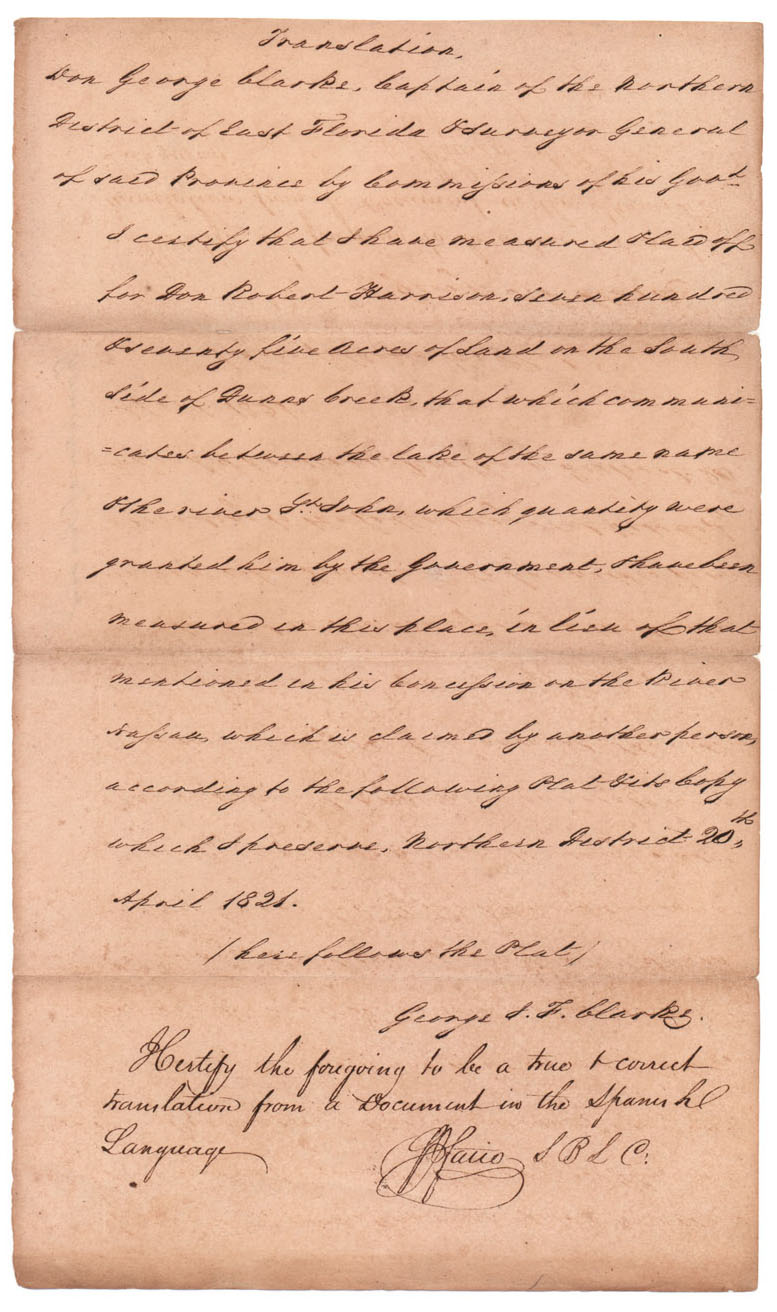 Translation.
Don George Clarke, Captain of the Northern
District of East Florida & Surveyor General
of said Province by Commissions of his Govt.
I certify that I have measured & laid off
for Don Robert Harrison, seven hundred
& seventy five Acres of Land on the South
side of Dunns Creek, that which communi=
=cates between the lake of the same name
& the river St. John, which quantity were
granted him by the Government, & have been
measured in this place, in lieu of that
mentioned in his Concession on the River
Nassau, which is claimed by another person,
according to the following Plat & its Copy
which I preserve, Northern District 20th,
April 1821.
(here follows the Plat)
George I. F. Clarke.
I Certify the foregoing to be a true & correct
translation from a Document in the Spanish
Language
S B L C.